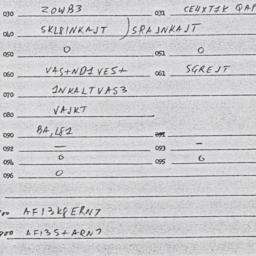 030 ZOWB3 031 CE4XT1K QAP
040 SKL8INKAJT )SRAJNKAJT
050 0 051 0
060 VAS+ND1VES+ 061 SGREJT
070 1NKALTVAS3
080 VAJKT
090 BA,L81
092 — 093 —
094 0 095 0
096 0
AFI3K8ERN7
900 AFI3S+ARN7